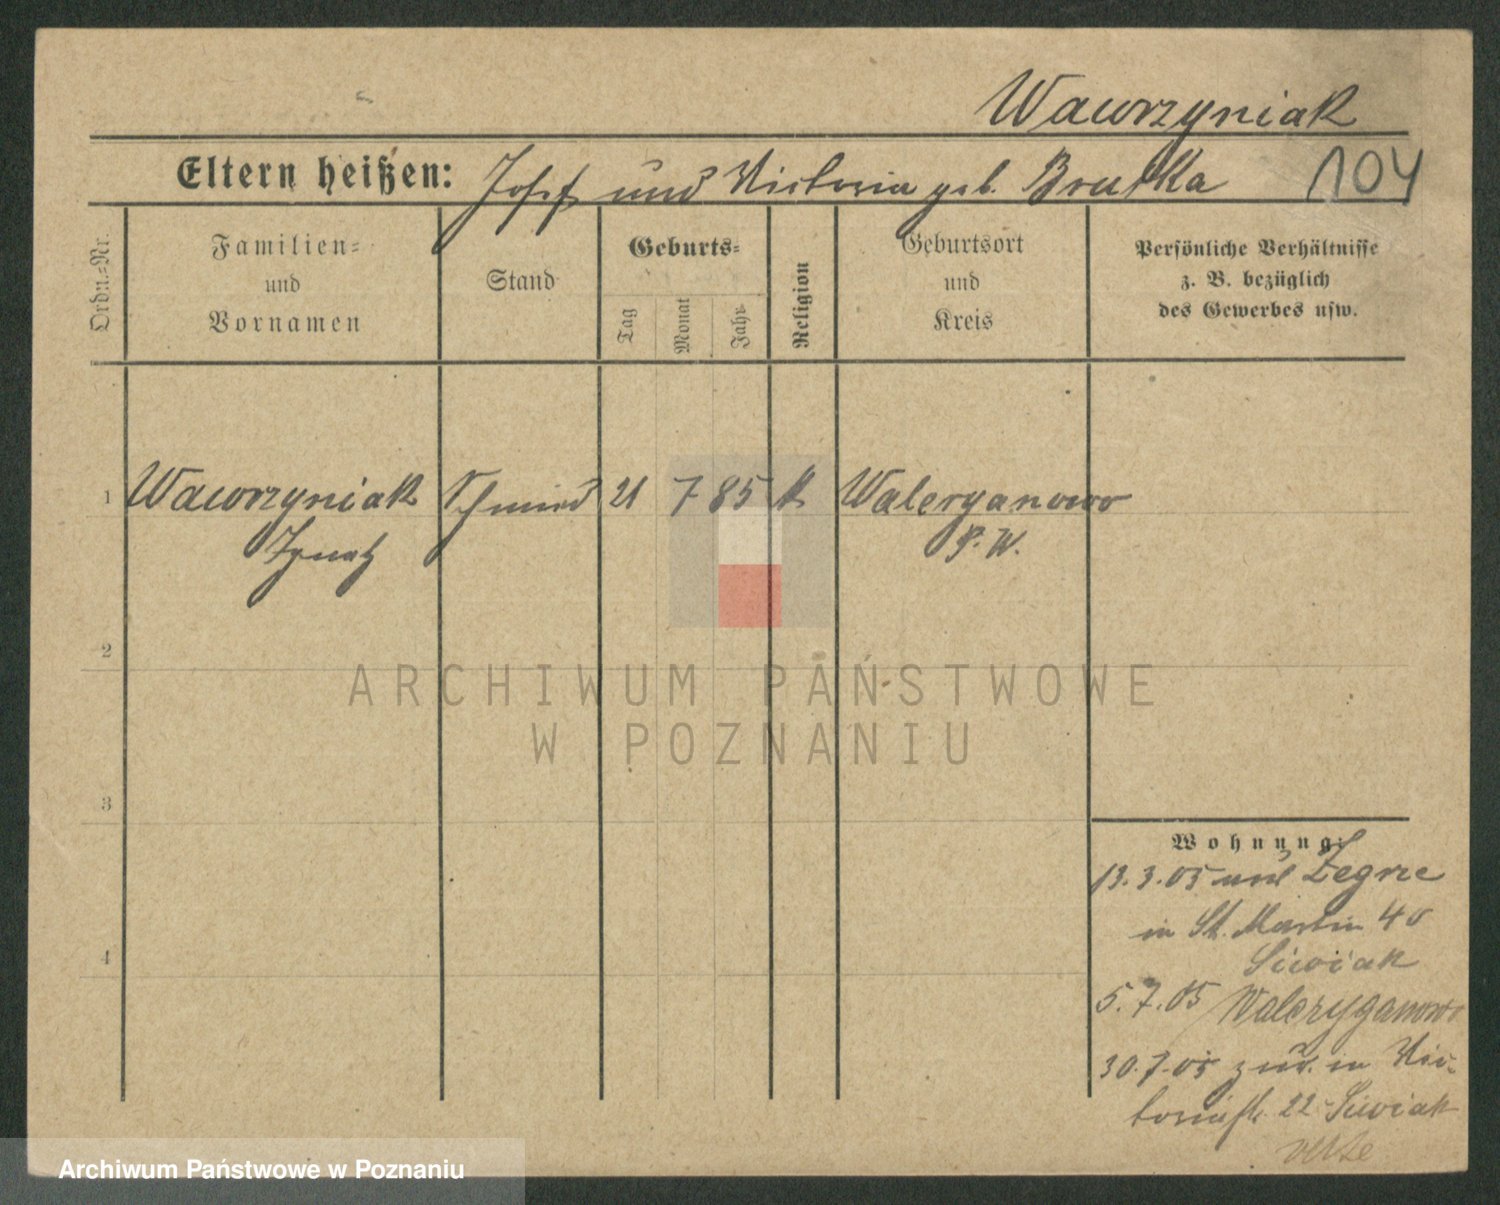 Wawrzyniak
Eltern heißen: Josef und Victoria geb. Brutka
104
Ordn.=Nr.
Familien=
und
Vornamen
Stand
Geburts=
Tag
Monat
Jahr
Religion
Geburtsort
und
Kreis
Persönliche Verhältnisse
z. B. bezüglich
des Gewerbes usw.
1 Wawrzyniak Schmied 21 7 85 k Waleryanowo
Ignatz P. W.
2
3
4
Wohnung:
13.3.05 aus Zegrze
in St. Martin 40
Siwiak
5.7.05 Waleryganowo
30.7.05 zur. in Vic-
toriastr. 22 Siwiak
ARCHIWUM PAŃSTWOWE
W POZNANIU
Archiwum Państwowe w Poznaniu